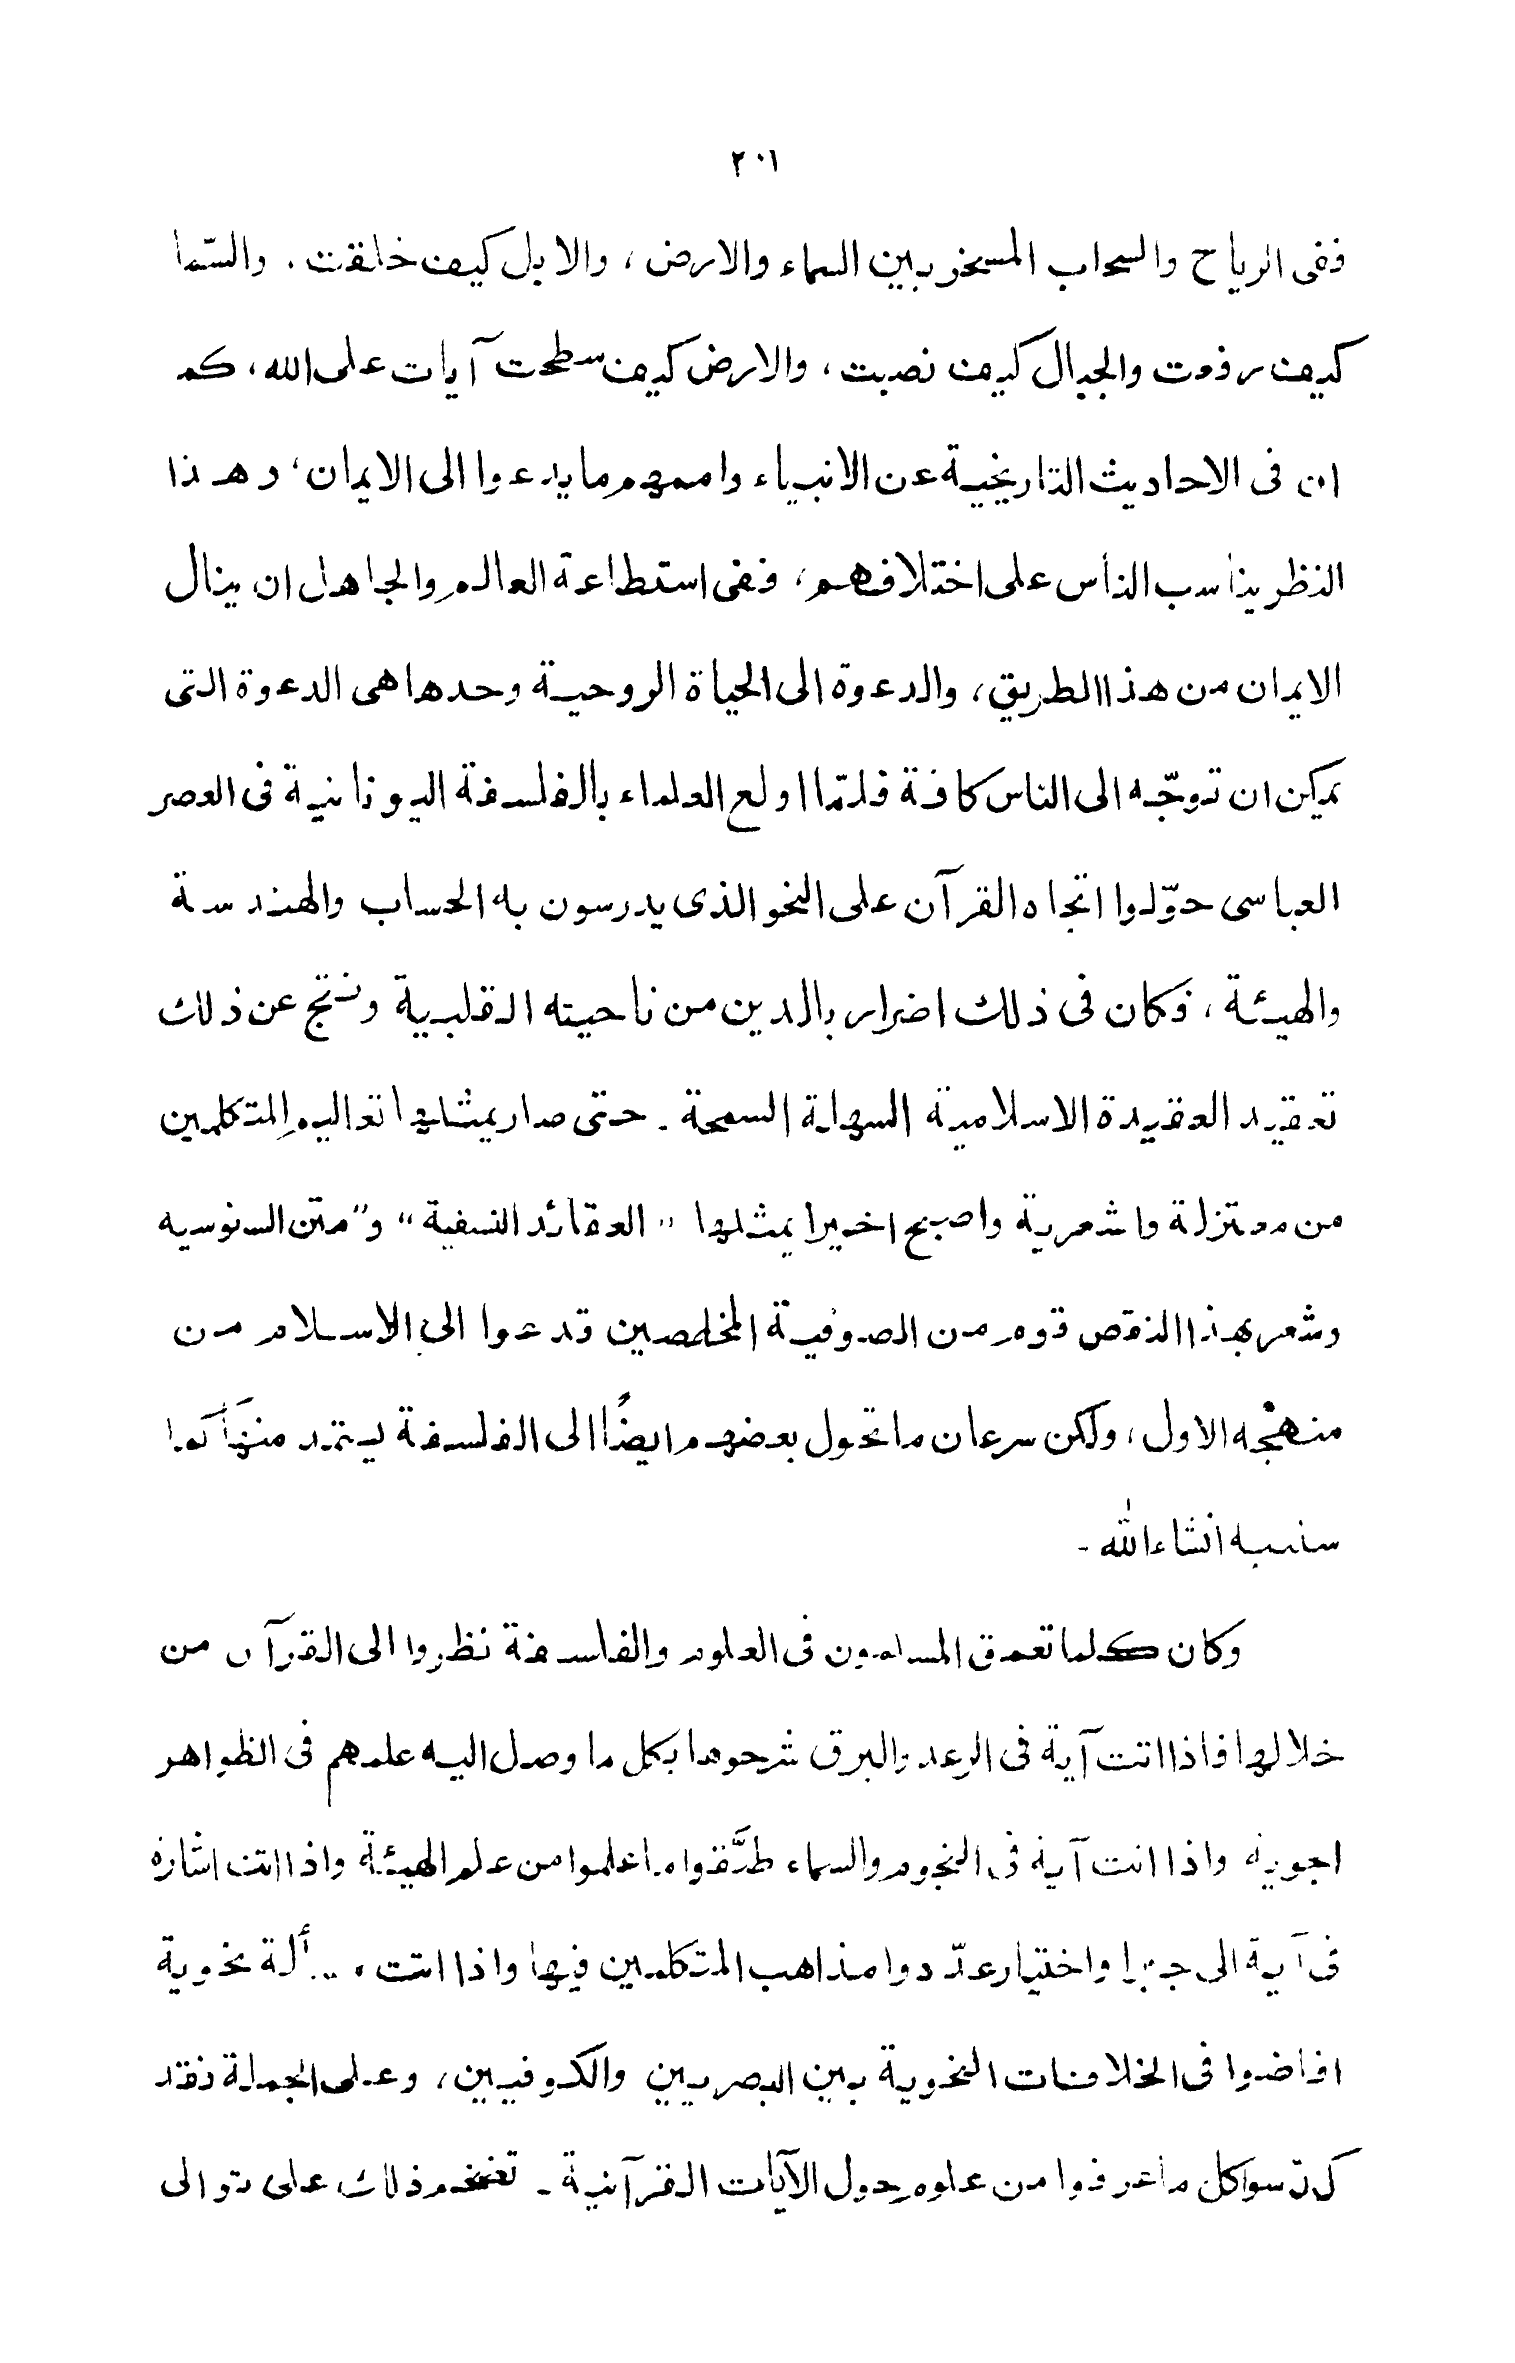 ٢٠١
ففى الرياح والسحاب المسخر بين السماء والارض، والابل كيف خلقت. والسّما
كيف رفعت والجبال كيف نصبت، والارض كيف سطحت آيات على الله، كم
ان فى الاحاديث التاريخية عن الانبياء واممهم ما يدعوا الى الايمان، وهذا
النظر يناسب الناس على اختلافهم، ففى استطاعة العالم والجاهل ان ينال
الايمان من هذا الطريق، والدعوة الى الحياة الروحية وحدها هى الدعوة التى
يمكن ان توجّه الى الناس كافة فلمّا اولع العلماء بالفلسفة اليونانية فى العصر
العباسى حوّلوا اتجاه القرآن على النحو الذى يدرسون به الحساب والهندسة
والهيئة، فكان فى ذلك اضرار بالدين من ناحيته القلبية ونتج عن ذلك
تعقيد العقيدة الاسلامية السهلة السمحة. حتى صار يمثلها تعاليم المتكلمين
من معتزلة واشعرية واصبح اخيرا يمثلها "العقائد النسفية" و"متن السنوسيه
وشعر بهذا النقص قوم من الصوفية المخلصين قد عوا الى الاسلام من
منهجه الاول، ولكن سرعان ما تحول بعضهم ايضًا الى الفلسفة يستمد منها كما
سنبينه انشاء الله -
وكان كلما تعمق المسلمون فى العلوم والفلسفة نظروا الى القرآن من
خلالها فاذا اتت آية فى الرعد والبرق شرحوها بكل ما وصل اليه علمهم فى الظواهر
اجوية واذا اتت آية فى النجوم والسماء طبَّقوا ما علموا من علم الهيئة واذا اتت اشارة
فى آية الى جبر واختيار عدّدوا مذاهب المتكلمين فيها واذا اتت مسألة نحوية
افاضوا فى الخلافات النحوية بين البصريين والكوفيين، وعلى الجملة فقد
كدّسوا كل ما عرفوا من علوم حول الآيات القرآنية - تضخم ذلك على توالى